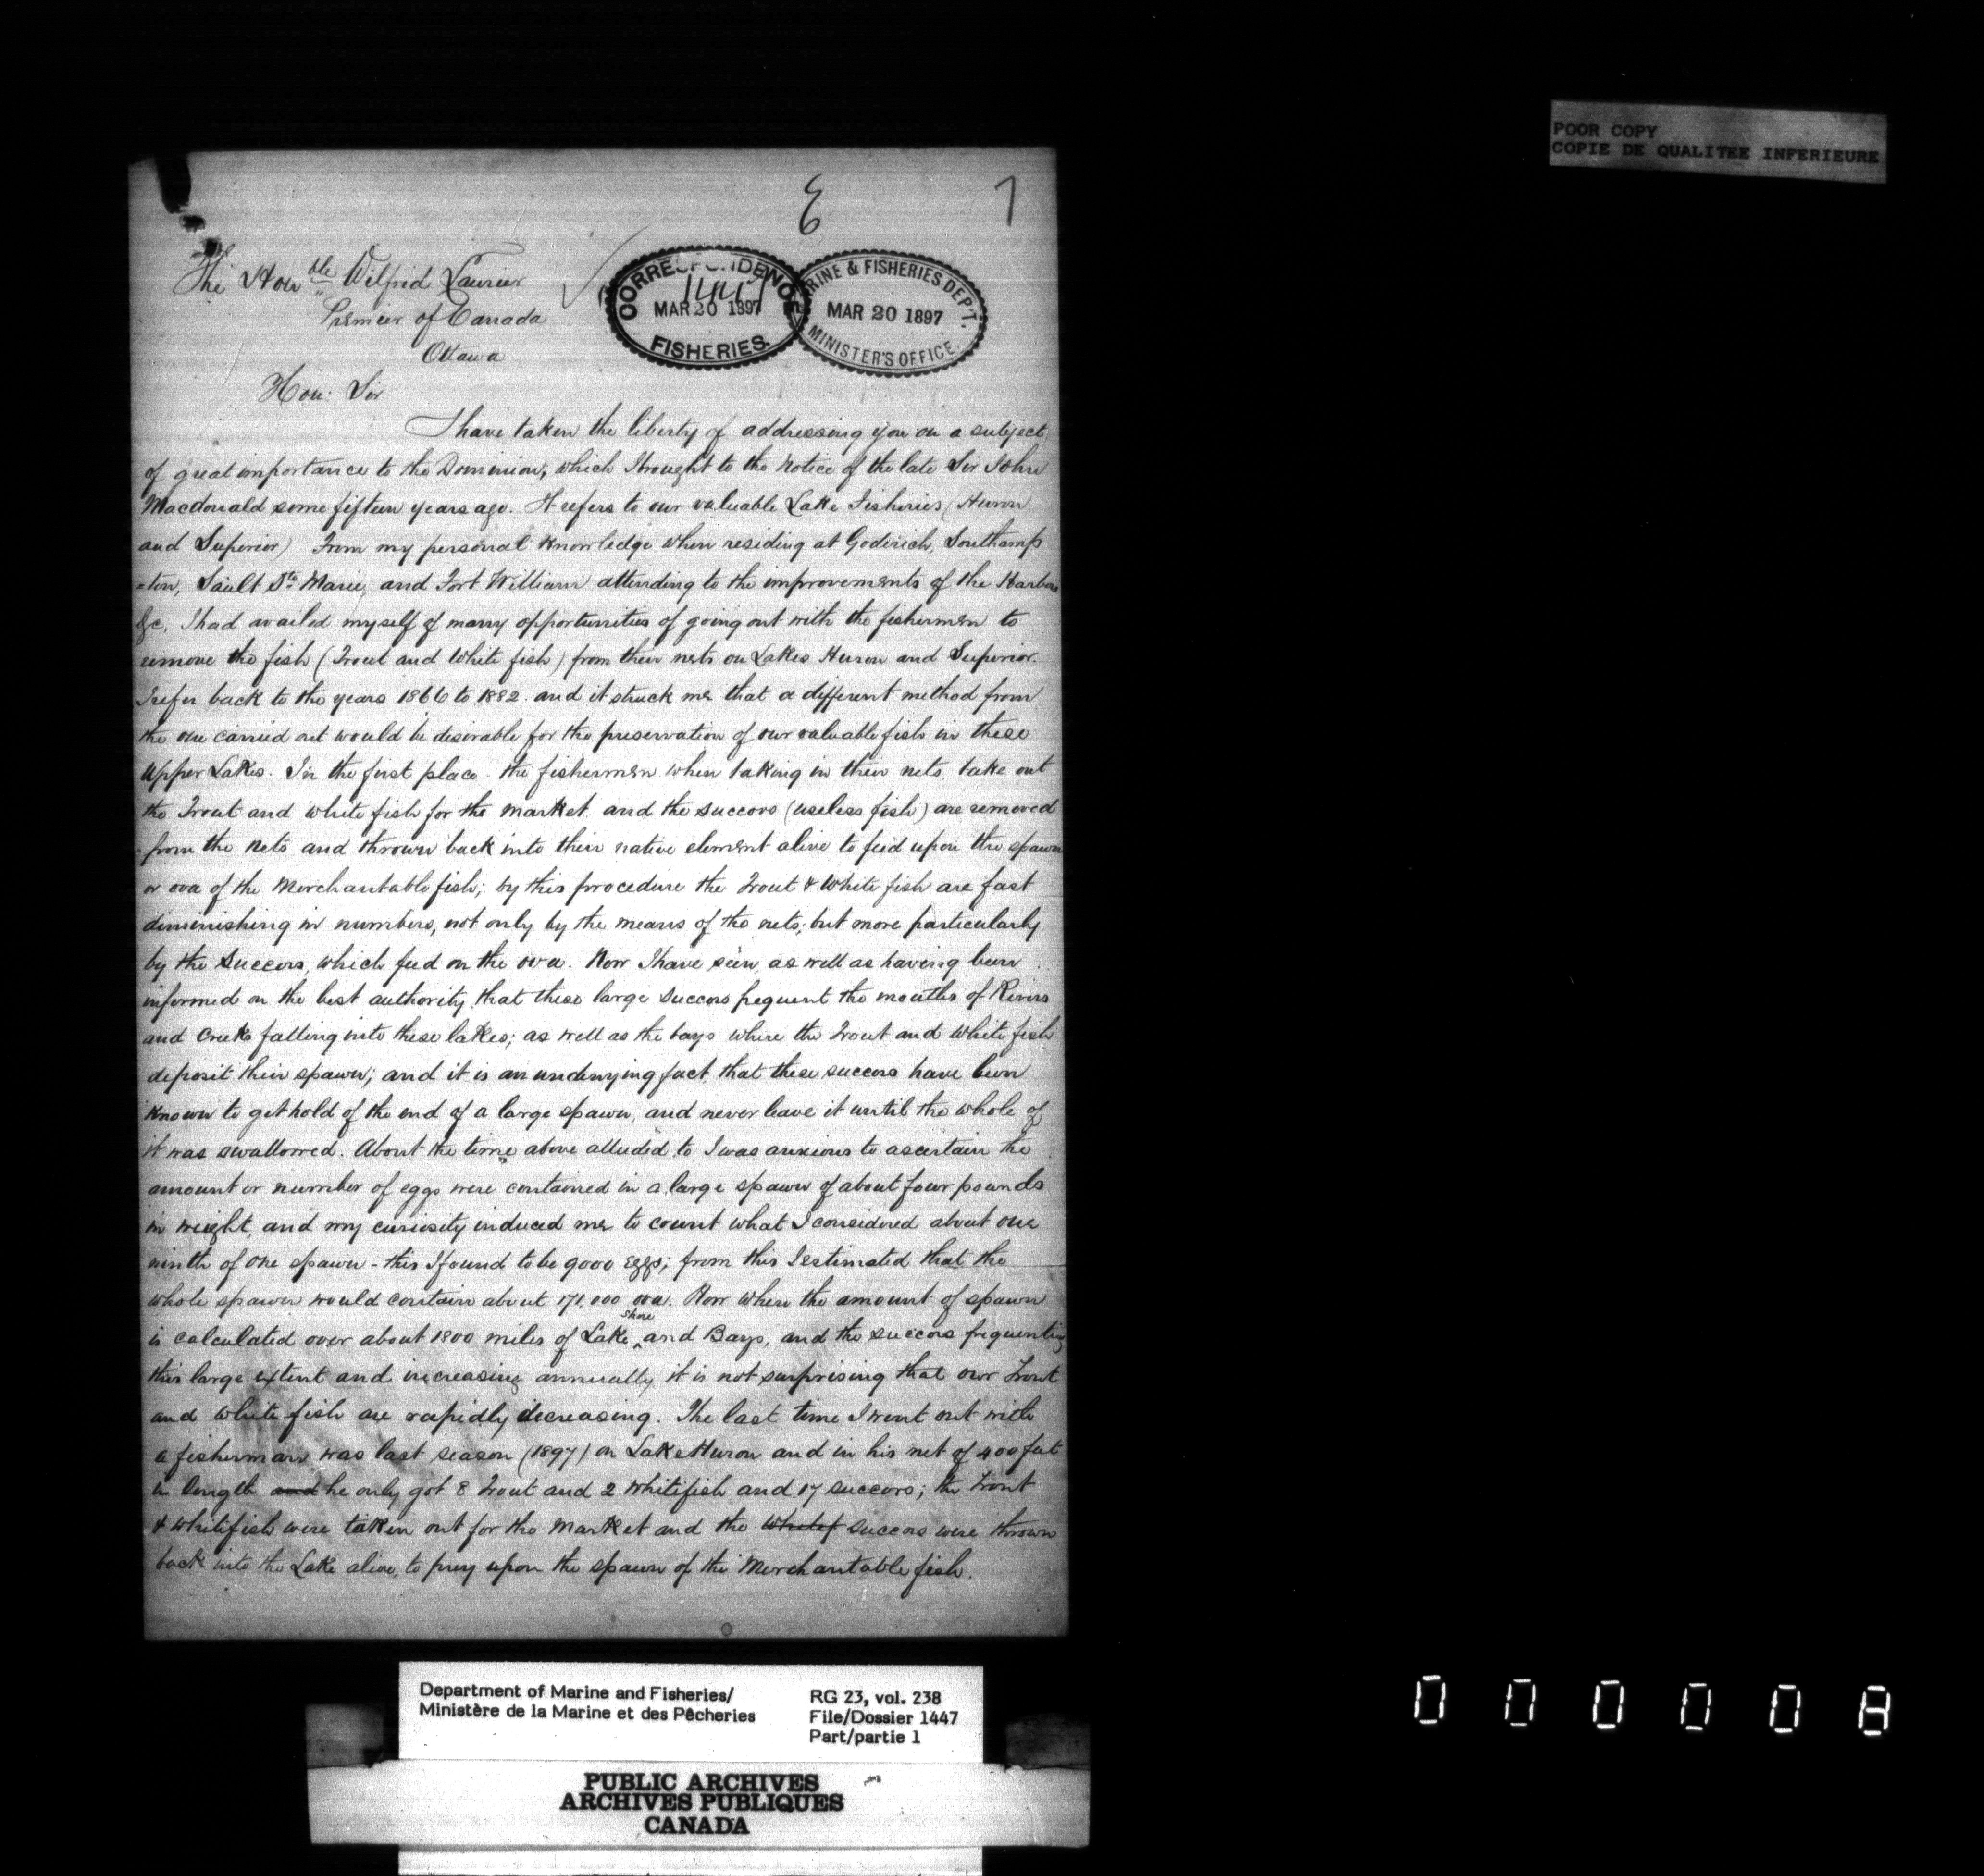 POOR COPY
COPIE DE QUALITEE INFERIEURE
E 7
The Honble Wilfrid Laurier
Premier of Canada
Ottawa
CORRESPONDENCE
1447
MAR 20 1897
FISHERIES.
MARINE & FISHERIES DEP'T.
MAR 20 1897
MINISTER'S OFFICE.
Hon: Sir
I have taken the liberty of addressing you on a subject
of great importance to the Dominion, which I brought to the notice of the late Sir John
Macdonald some fifteen years ago. It refers to our valuable Lake Fisheries (Huron
and Superior) From my personal knowledge when residing at Goderich, Southamp
=ton, Sault Ste Marie, and Fort William attending to the improvements of the Harbors
&c, I had availed myself of many opportunities of going out with the fishermen to
remove the fish (Trout and White fish) from their nets on Lakes Huron and Superior.
I refer back to the years 1866 to 1882. and it struck me that a different method from
the one carried out would be desirable for the preservation of our valuable fish in these
Upper Lakes. In the first place - the fishermen when taking in their nets, take out
the Trout and white fish for the market and the succors (useless fish) are removed
from the nets and thrown back into their native element alive to feed upon the spawn
or ova of the Merchantable fish; by this procedure the Trout & White fish are fast
diminishing in numbers, not only by the means of the nets; but more particularly
by the Succors, which feed on the ova. Now I have seen, as well as having been
informed on the best authority that these large succors frequent the mouths of Rivers
and Creeks falling into these lakes; as well as the bays where the Trout and White fish
deposit their spawn; and it is an undenying fact, that these succors have been
known to get hold of the end of a large spawn, and never leave it until the whole of
it was swallowed. About the time above alluded to I was anxious to ascertain the
amount or number of eggs were contained in a large spawn of about four pounds
in weight, and my curiosity induced me to count what I considered about one
ninth of one spawn - this I found to be 9000 eggs; from this I estimated that the
whole spawn would contain about 171,000 ova. Now when the amount of spawn
is calculated over about 1800 miles of Lake shore and Bays, and the succors frequenting
this large extent and increasing annually it is not surprising that our Trout
and white fish are rapidly decreasing. The last time I went out with
a fisherman was last season (1897) on Lake Huron and in his net of 400 feet
in length and he only got 8 Trout and 2 whitefish and 17 succors; the Trout
& whitefish were taken out for the market and the Whitef succors were thrown
back into the Lake alive, to prey upon the spawn of the Merchantable fish.
Department of Marine and Fisheries/
Ministère de la Marine et des Pêcheries
RG 23, vol. 238
File/Dossier 1447
Part/partie 1
PUBLIC ARCHIVES
ARCHIVES PUBLIQUES
CANADA
000008